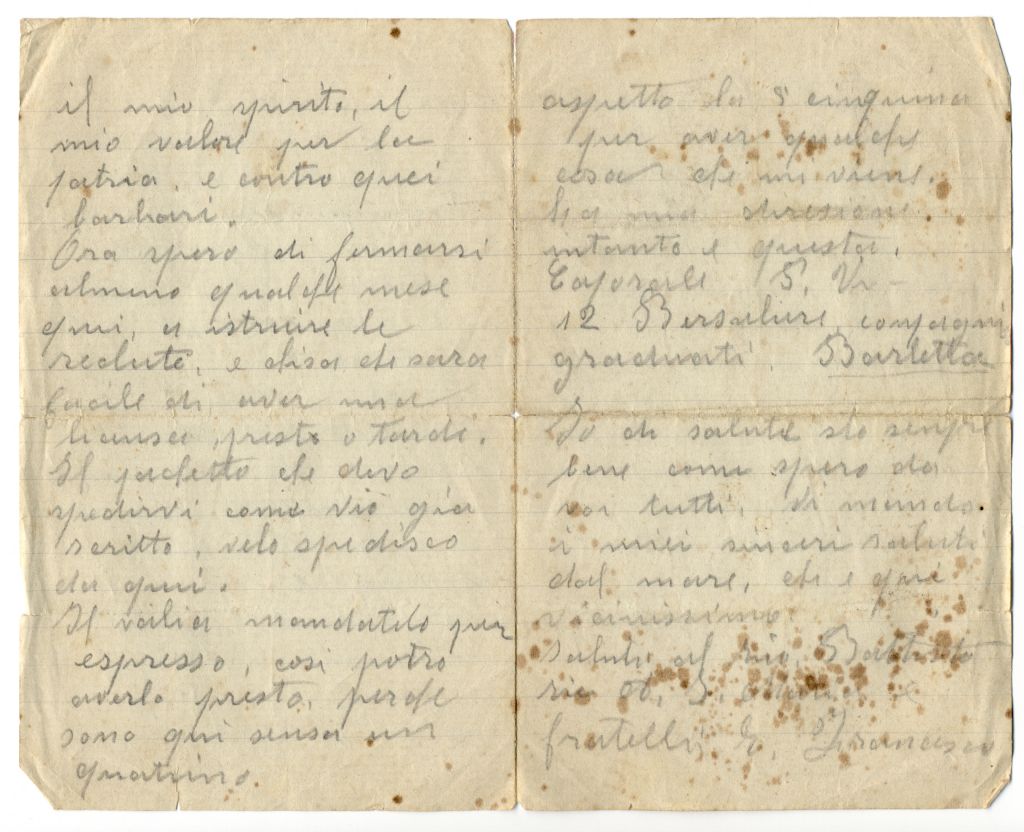 il mio spirito, il
mio valore per la
patria, e contro quei
barbari.
Ora spero di fermarsi
almeno qualche mese
qui, a istruire le
reclute, e chisa che sara
facile di aver una
licensa, presto o tarde.
Il pachetto che devo
spedirvi come vio già
scritto, velo spedisco
da qui.
Il valia mandatelo per
espresso, cosi potro
averlo presto, perche
sono qui sensa un
quatrino.
aspetto la 5 cinquina
per aver qualche
cosa che mi viene.
La mia diresione
intanto e questa.
Caporale S. V.
12 Bersaliere compagni
graduati. Barletta
Io di salute sto sempre
bene come spero da
voi tutti. Vi mando
i miei sinceri saluti
dal mare, che e qui
vicinissimo.
Saluti al zio Battista
fratelli, E. Francesco